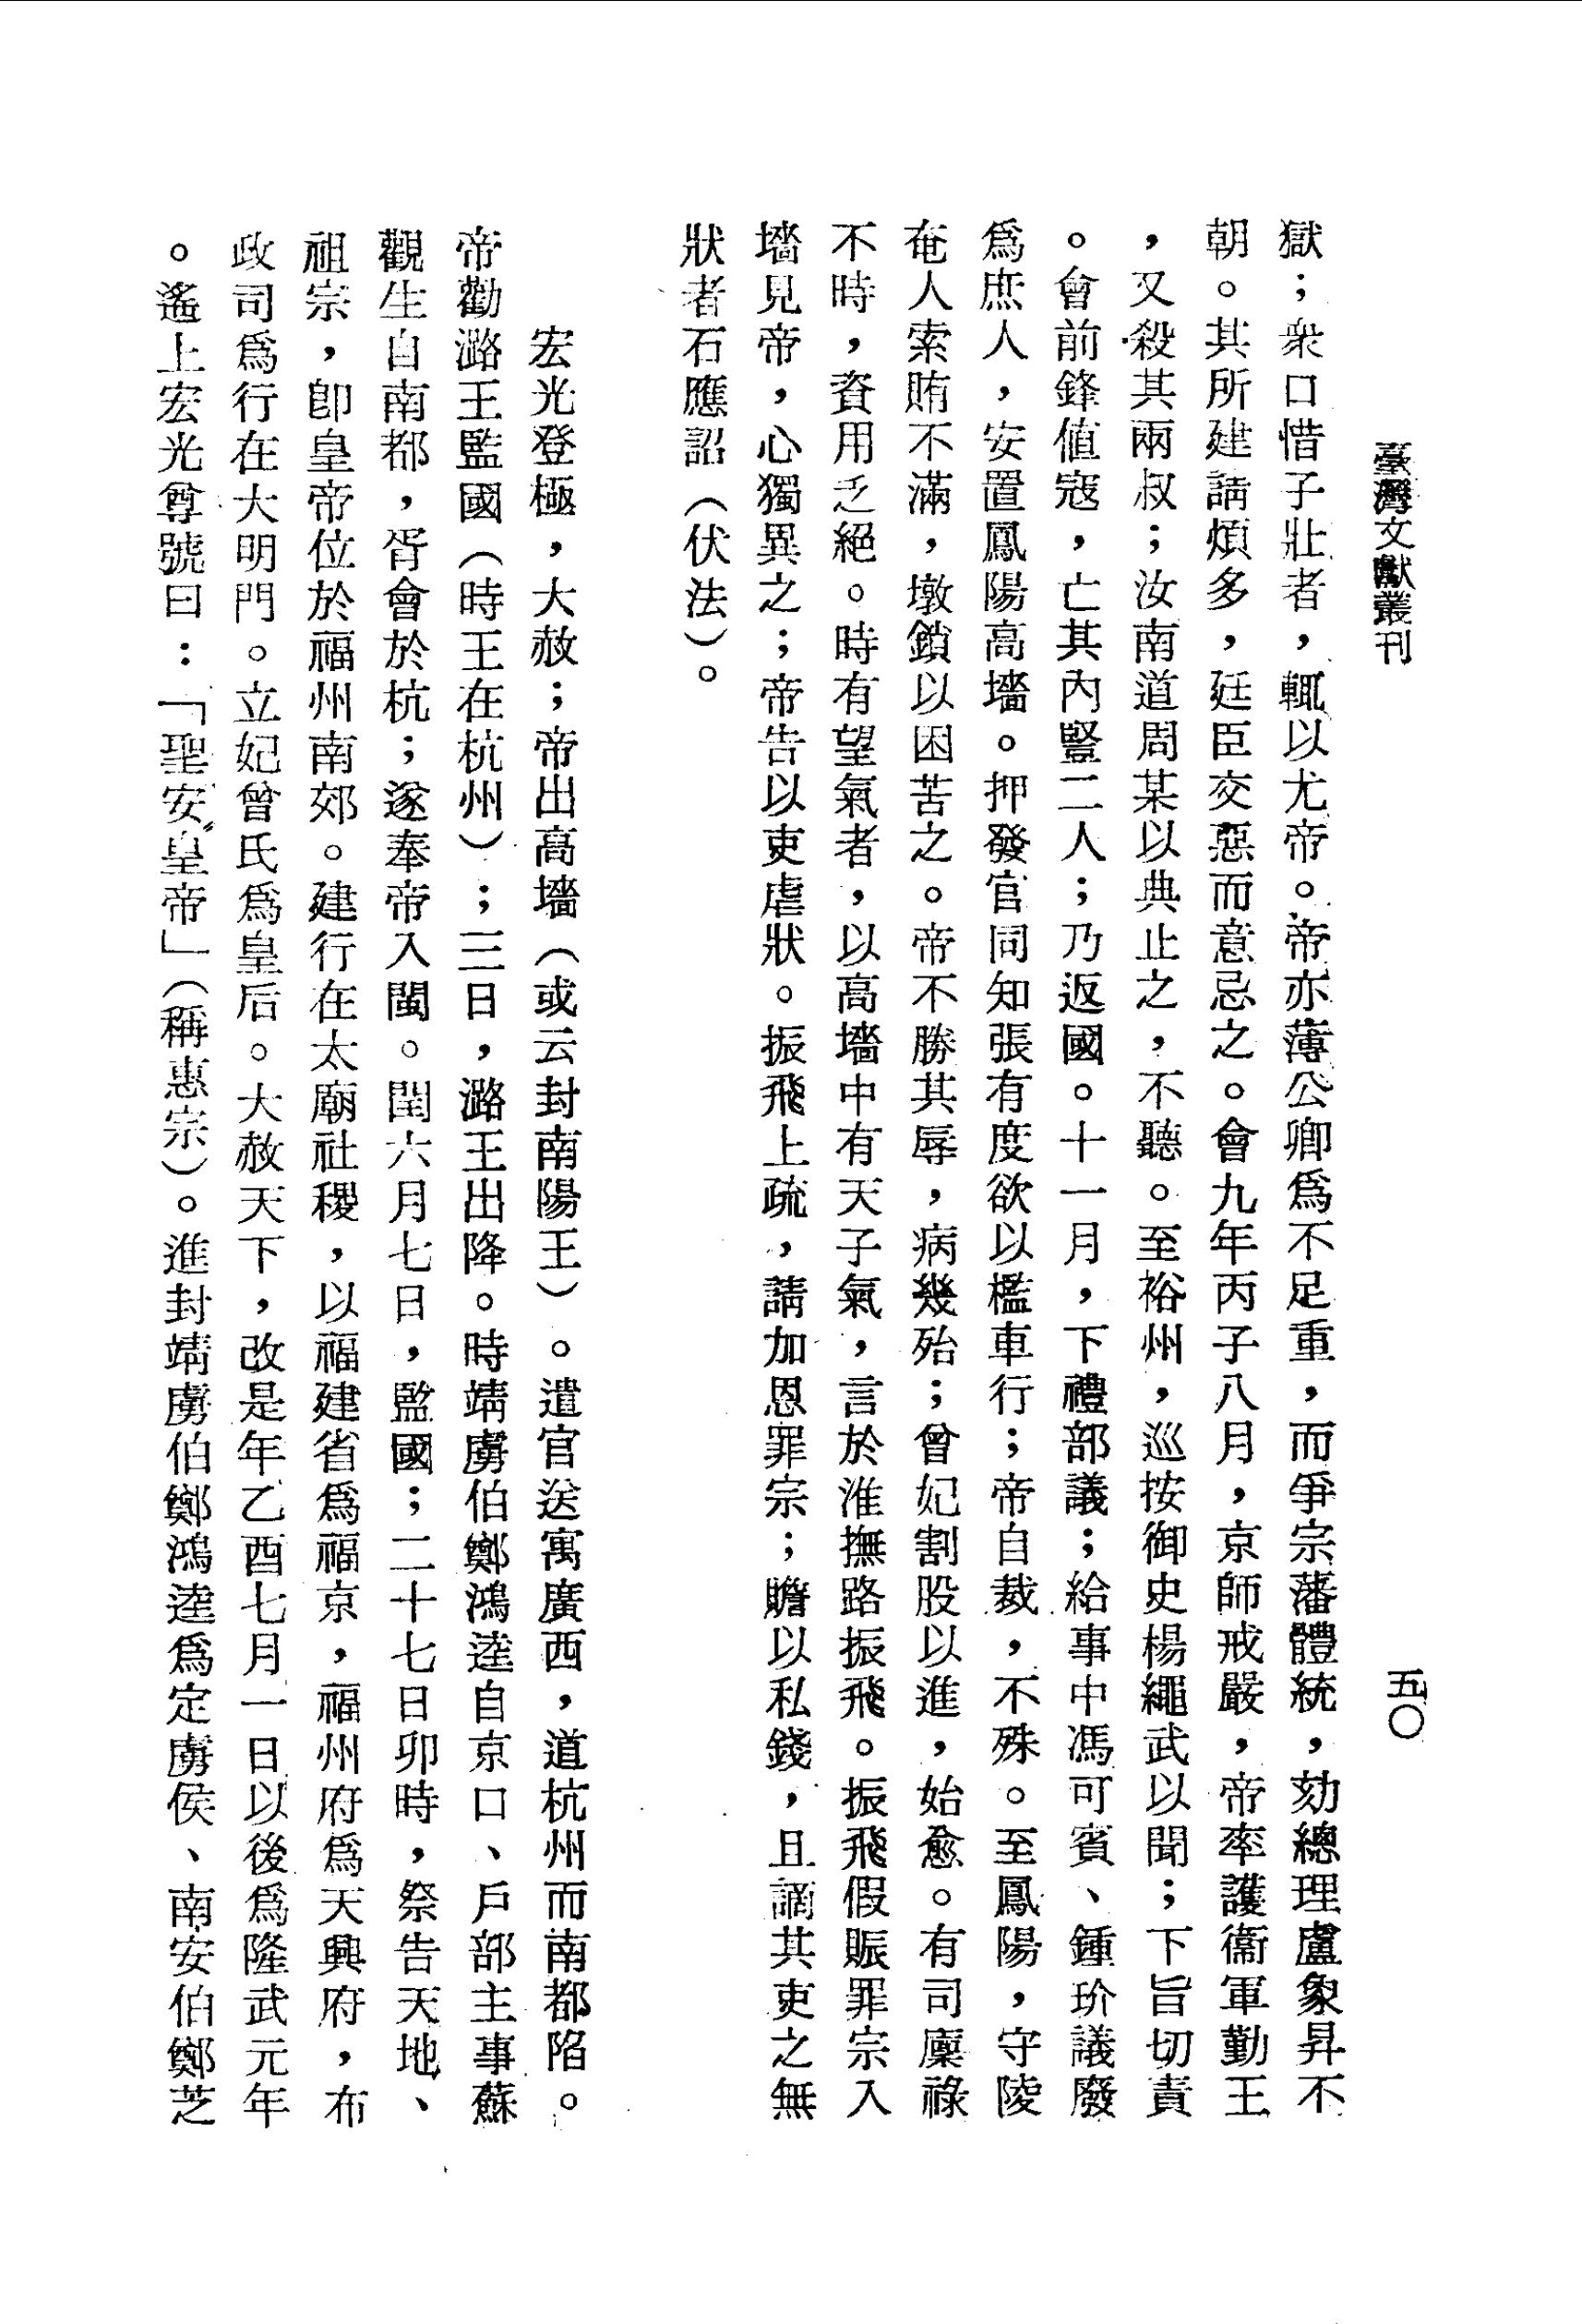 臺灣文獻叢刊
五〇
獄；衆口惜子壯者，輒以尤帝。帝亦薄公卿爲不足重，而爭宗藩體統，劾總理盧象昇不
朝。其所建請煩多，廷臣交惡而意忌之。會九年丙子八月，京師戒嚴，帝率護衞軍勤王
，又殺其兩叔；汝南道周某以典止之，不聽。至裕州，巡按御史楊繩武以聞；下旨切責
。會前鋒値寇，亡其內豎二人；乃返國。十一月，下禮部議；給事中馮可賓、鍾玠議廢
爲庶人，安置鳳陽高墻。押發官同知張有度欲以檻車行；帝自裁，不殊。至鳳陽，守陵
奄人索賄不滿，墩鎖以困苦之。帝不勝其辱，病幾殆；曾妃割股以進，始愈。有司廩祿
不時，資用乏絕。時有望氣者，以高墻中有天子氣，言於淮撫路振飛。振飛假賑罪宗入
墻見帝，心獨異之；帝告以吏虐狀。振飛上疏，請加恩罪宗；贍以私錢，且謫其吏之無
狀者石應詔（伏法）。
宏光登極，大赦；帝出高墻（或云封南陽王）。遣官送寓廣西，道杭州而南都陷。
帝勸潞王監國（時王在杭州）；三日，潞王出降。時靖虜伯鄭鴻逵自京口、戶部主事蘇
觀生自南都，胥會於杭；遂奉帝入閩。閏六月七日，監國；二十七日卯時，祭告天地、
祖宗，卽皇帝位於福州南郊。建行在太廟社稷，以福建省爲福京，福州府爲天興府，布
政司爲行在大明門。立妃曾氏爲皇后。大赦天下，改是年乙酉七月一日以後爲隆武元年
。遙上宏光尊號曰：「聖安皇帝」（稱惠宗）。進封靖虜伯鄭鴻逵爲定虜侯、南安伯鄭芝